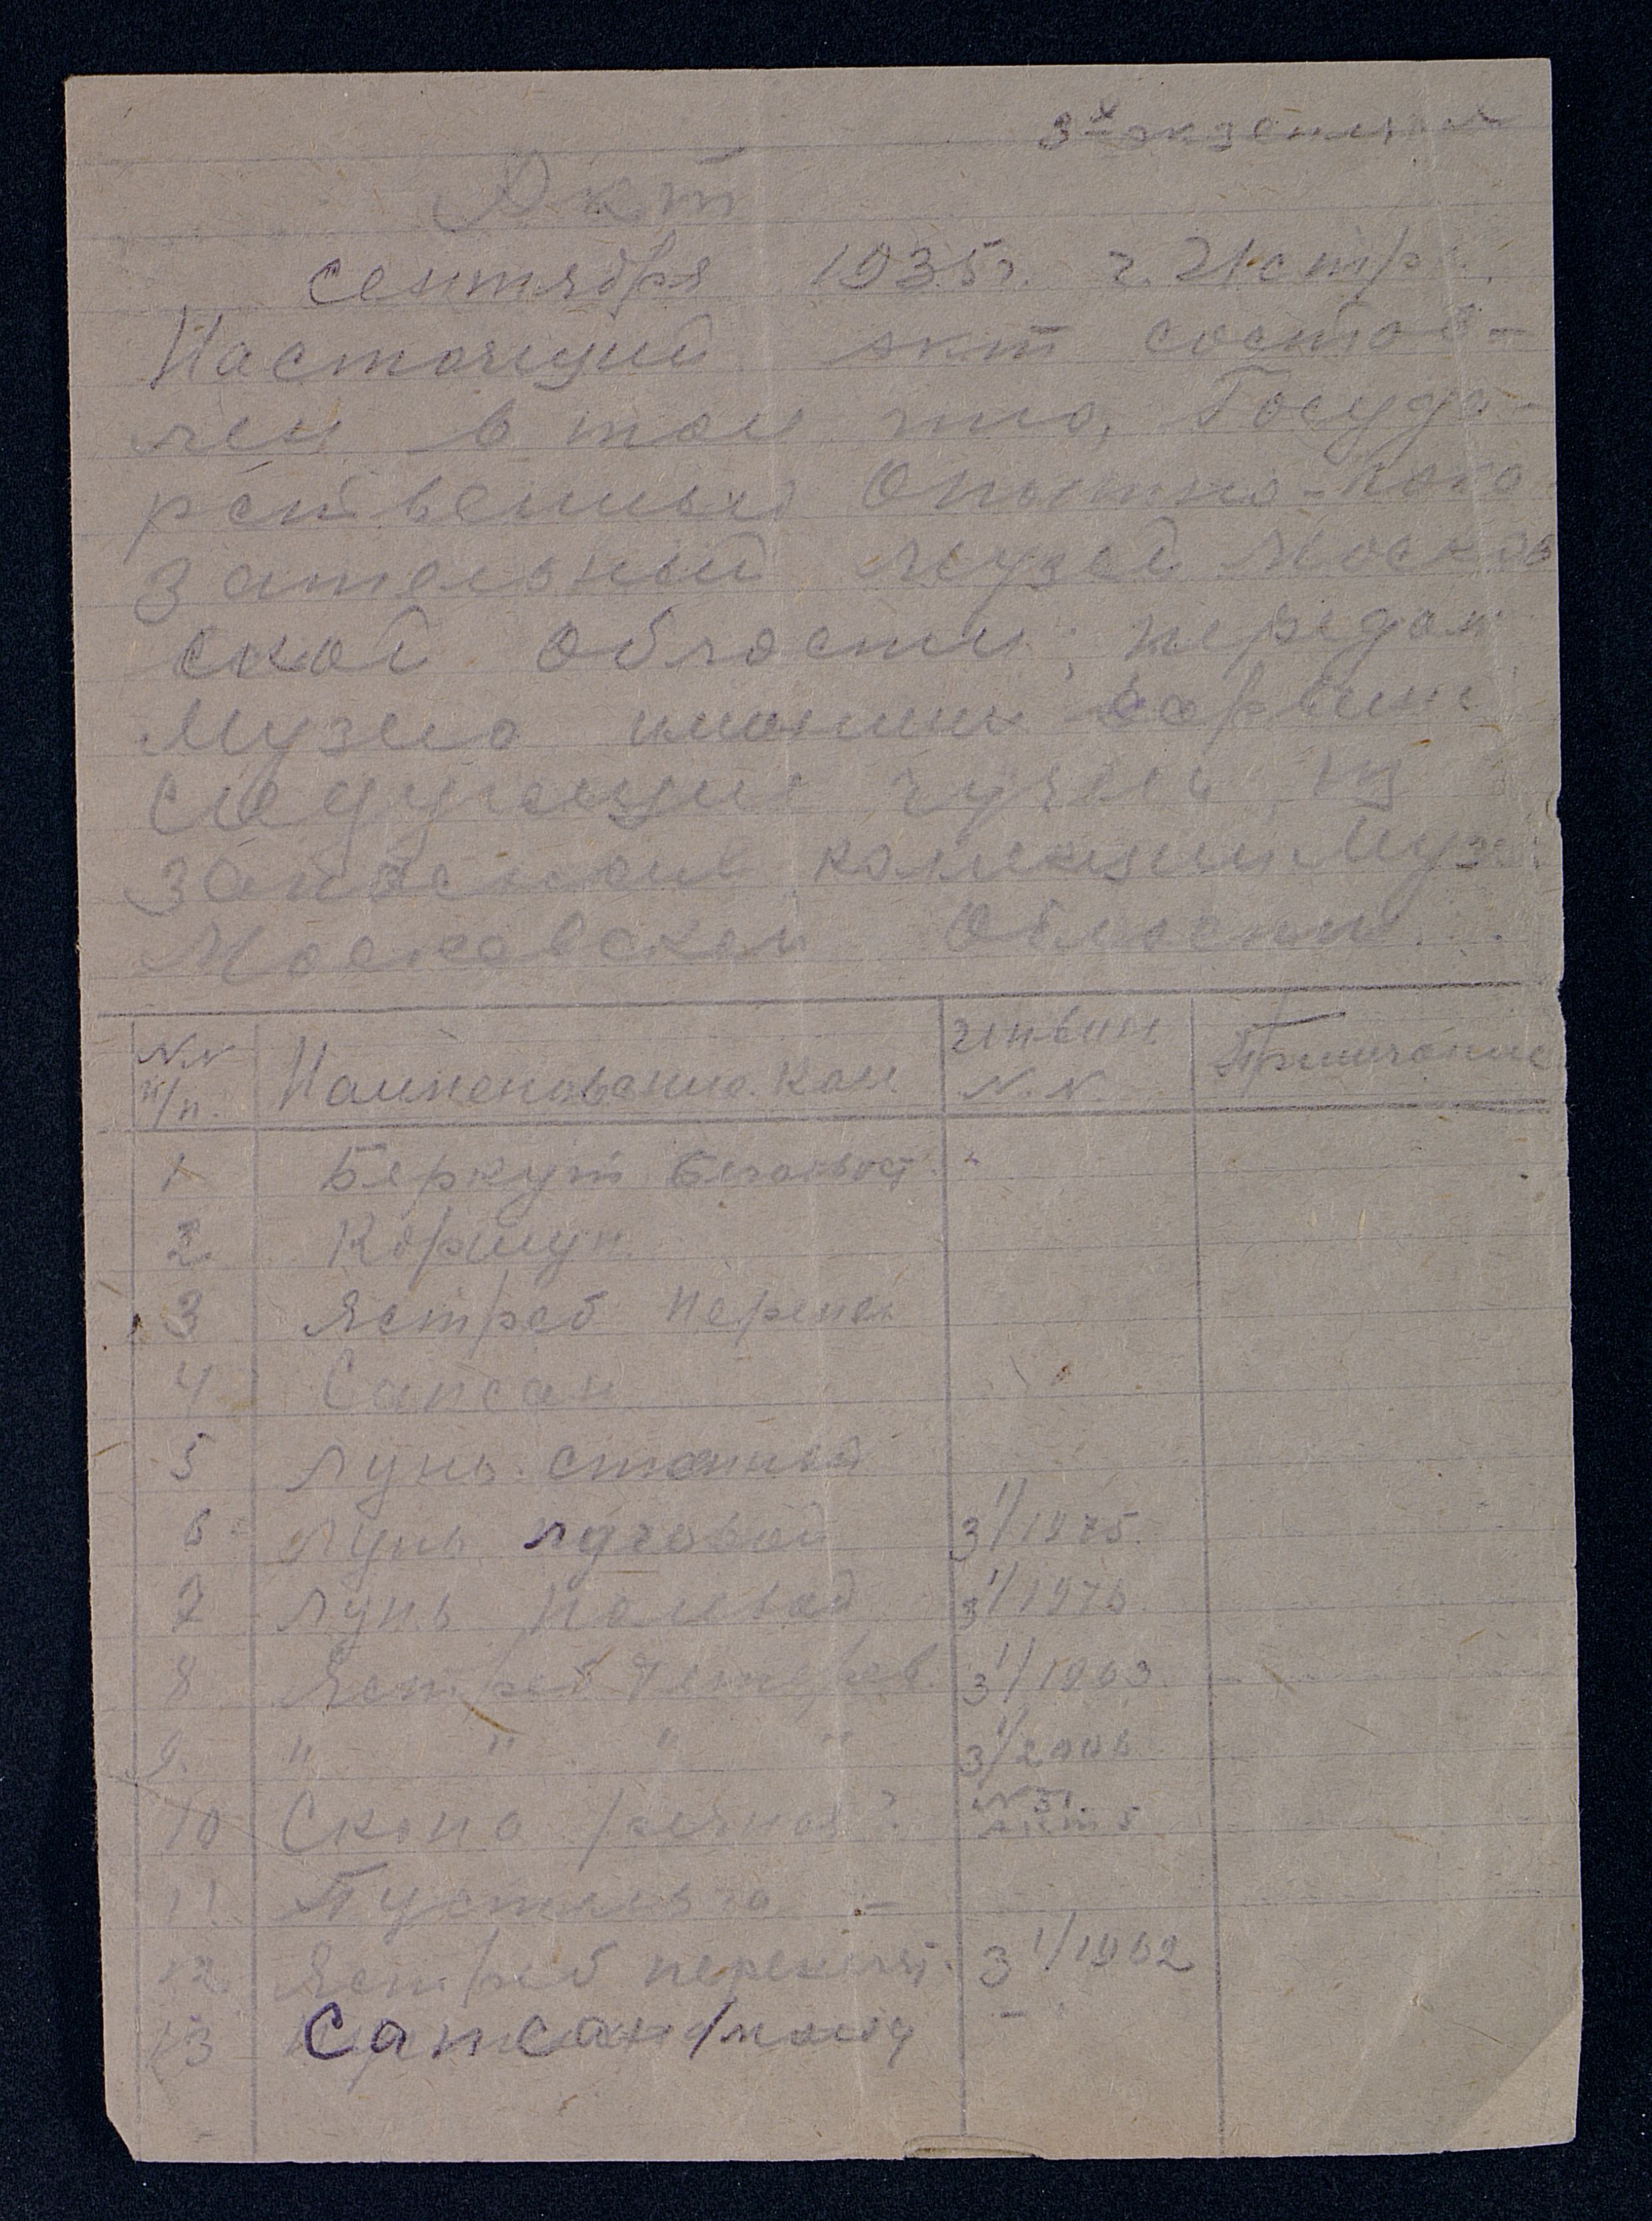 3х экземплярах
Акт
сентября 1935г. г. Истра.
Настоящий акт состав-
лен в том что, Госуда-
рственный Опытно-пока
зательный музей Москов
ской области, передал
Музею имени Дарвина
следующие чучела, из
запасных коллекции Муз.
Московской Области.
N.N п/п. Наименование. кол. Инвент N.N. Примечание
1 Беркут белохвост. "
2. Коршун
3 Ястреб перепел
4 Сапсан
5 Лунь степной
6 Лунь луговой 3 1/1975.
7 Лунь полевой 3 1/1976.
8 Ястреб тетерев. 3 1/1963.
9. " " " " 3 1/2006
10 Скопа речная? N 31
11 Пустельга –
12. Ястреб перепелят. 3 1/1962
13 Сапсан /молод –